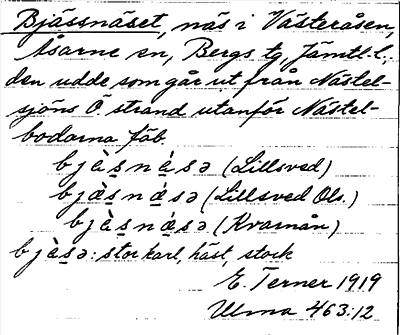 Bjässnäset, näs i Västeråsen,
Åsarne sn, Bergs tg, Jämtl. l.,
den udde som går ut från Nästel-
sjöns Ö strand utanför Nästel-
bodarna fäb.
bjà̀s̠násə (Lillsved)
bjæ̀s̠nǽsə (Lillsved Ols.)
bjæ̀s̠nǽsə (Kvarnån)
bjæ̀s̠ə: stor karl, häst, stock
E. Terner 1919
Ulma 463:12